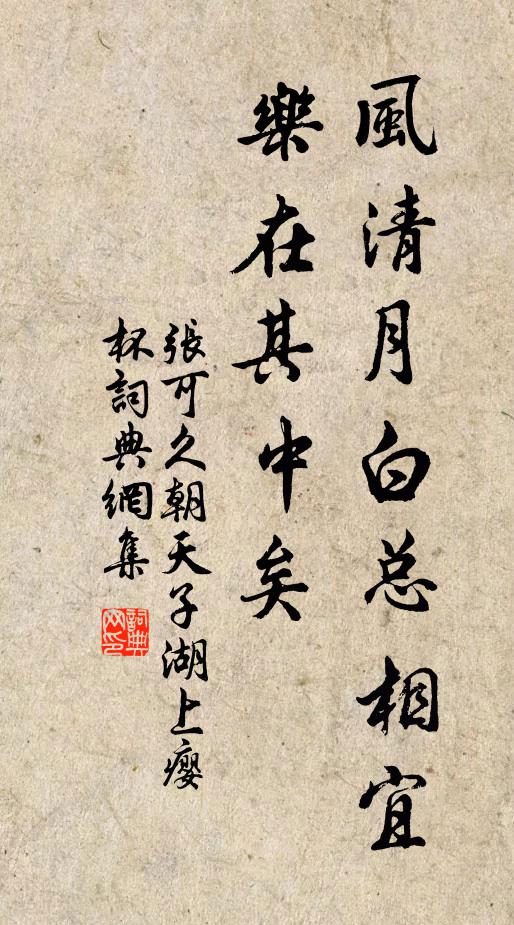 風清月白总相宜
樂在其中矣
張可久朝天子湖上瘿
杯詞典網集
詞典
网印